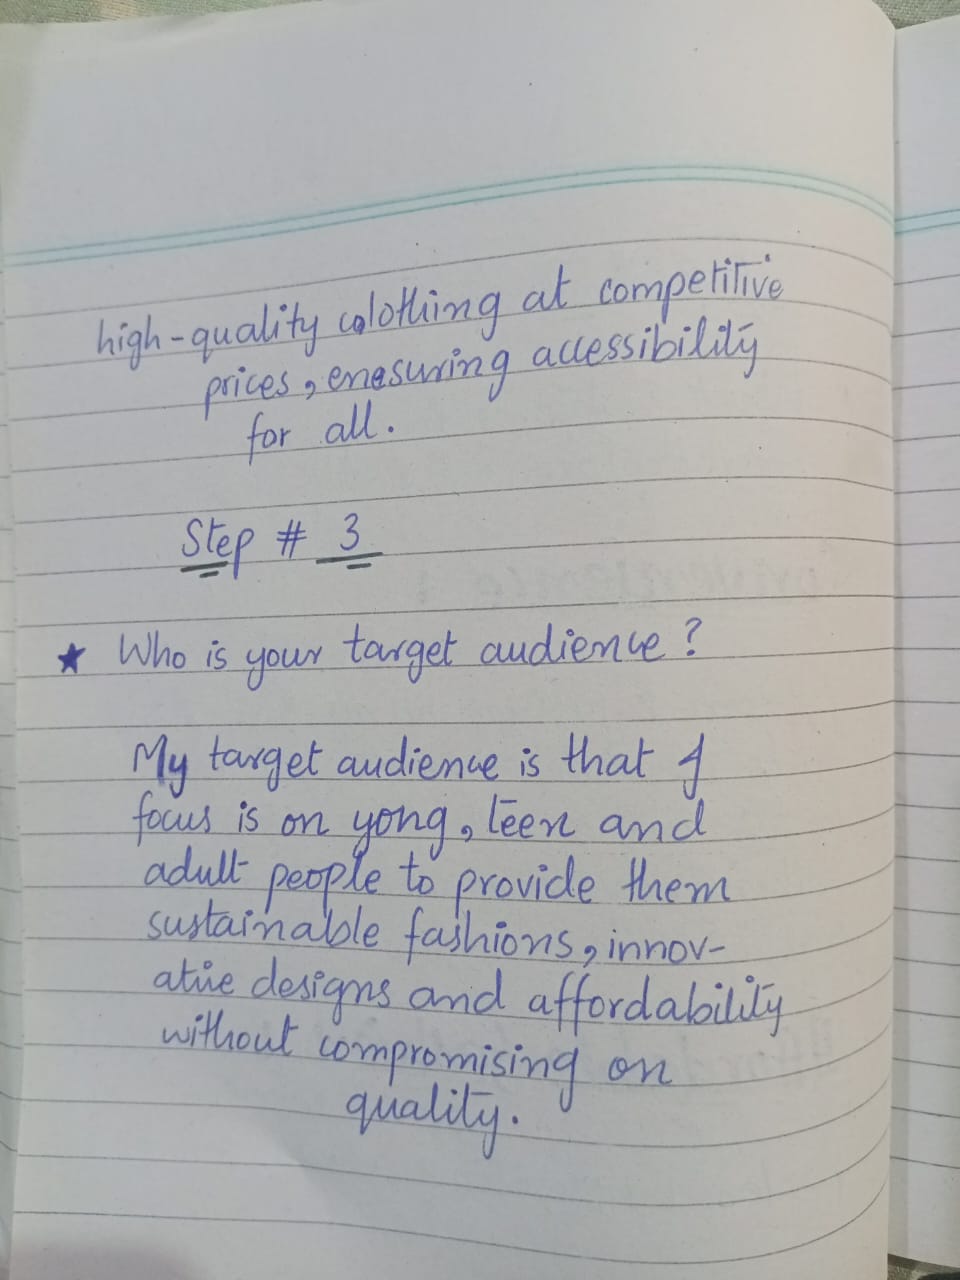 high-quality colothing at competitive
prices, enasuring accessibility
for all.
Step # 3
★ Who is your target audience?
My target audience is that I
focus is on yong, teen and
adult people to provide them
sustainable fashions, innov-
ative designs and affordability
without compromising on
quality.